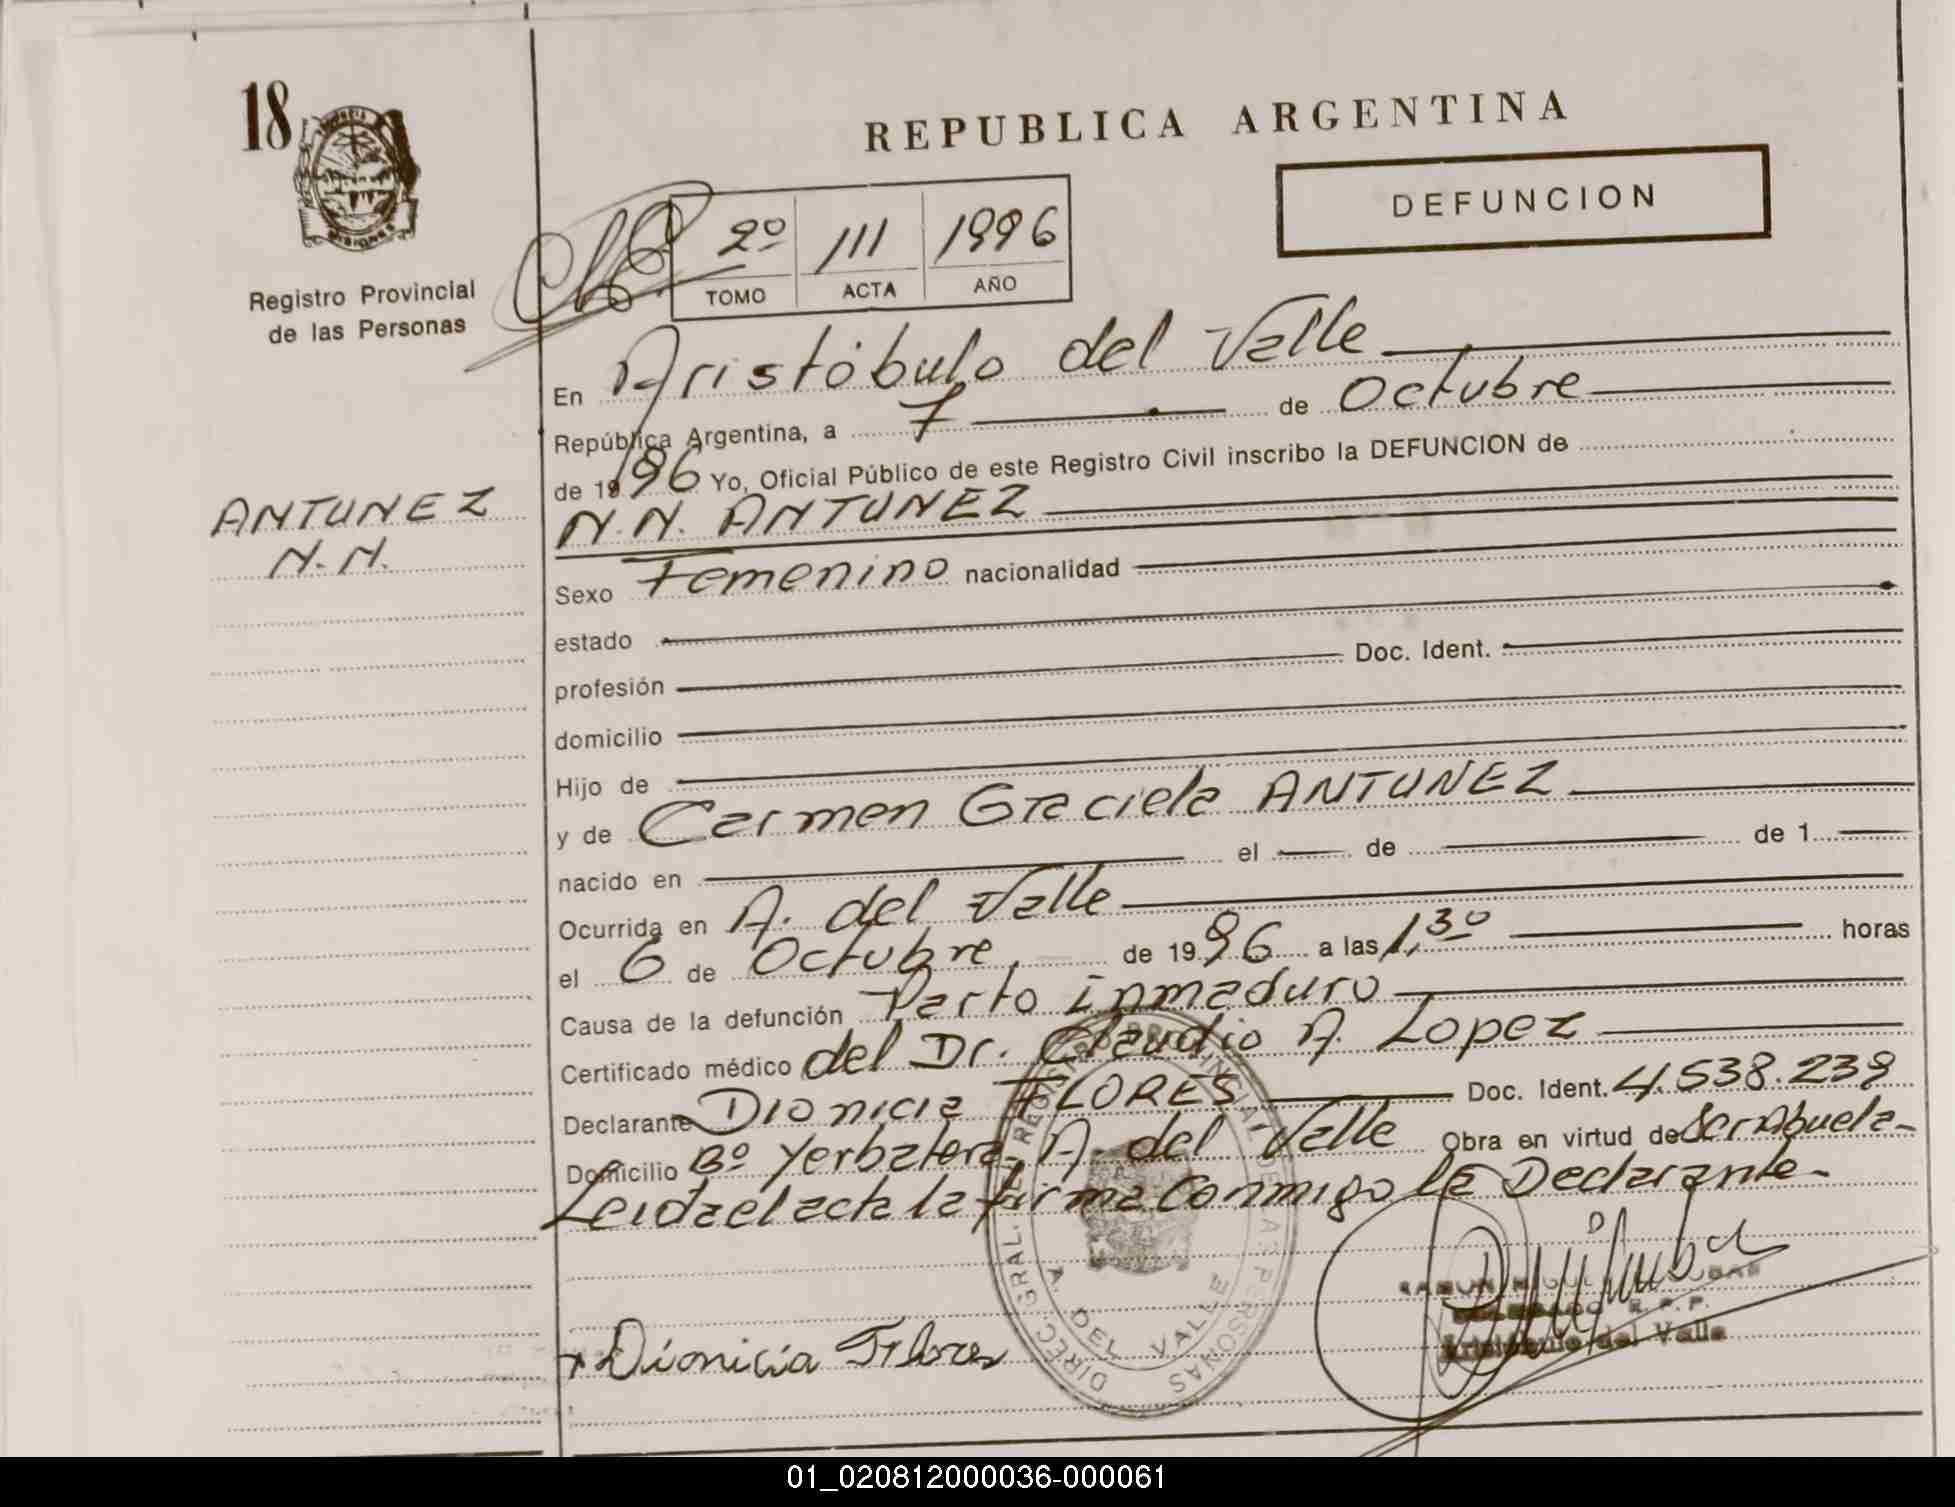 18
REPUBLICA ARGENTINA
DEFUNCION
MISIONES
Registro Provincial
de las Personas
2º 111 1996
TOMO ACTA AÑO
En Aristóbulo del Valle
República Argentina, a 7 de Octubre
de 1996 Yo, Oficial Público de este Registro Civil inscribo la DEFUNCION de
ANTUNEZ
N.N.
N.N. ANTUNEZ
Sexo Femenino nacionalidad
estado
profesión Doc. Ident.
domicilio
Hijo de
y de Carmen Graciela ANTUNEZ
nacido en el de de 1
Ocurrida en A. del Valle
el 6 de Octubre de 1996 a las 1,30 horas
Causa de la defunción Parto inmaduro
Certificado médico del Dr. Claudio A. Lopez
Declarante Dionicia FLORES Doc. Ident. 4.538.239
Domicilio Bº Yerbatera A. del Valle Obra en virtud de Ser Abuela-
Leida el acta la firma Conmigo la Declarante-
DIREC. GRAL. DEL REGISTRO PROVINCIAL DE LAS PERSONAS
A. DEL VALLE
Aristóbulo del Valle
Dionicia Flores
01_020812000036-000061